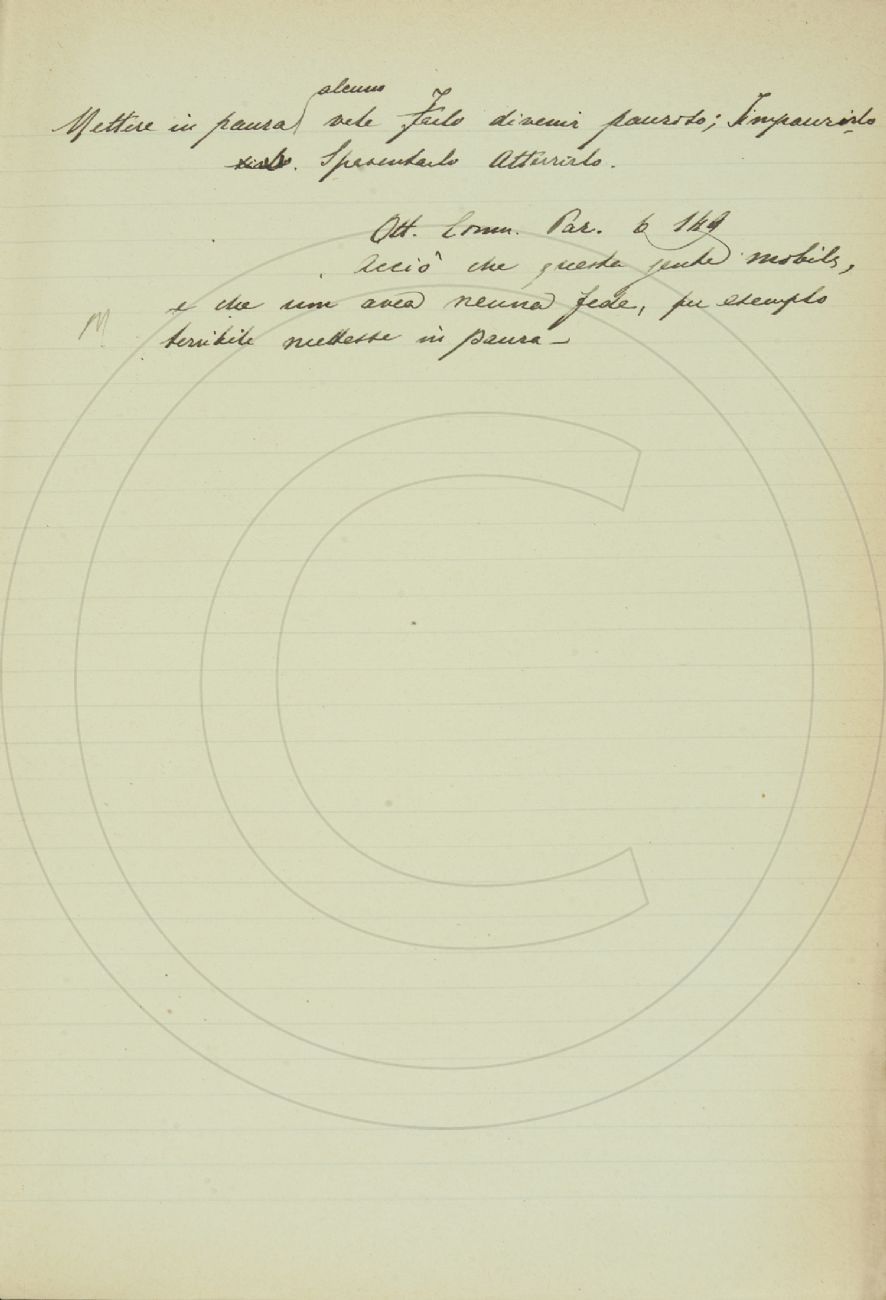 alcuno
Mettere in paura vale Farlo divenir pauroso; Impaurirlo
Spaventarlo Atterrirlo.
Ott. Comm. Par. 6 149
Acciò che questa gente mobile,
e che non avea neuna fede, per esemplo
M
terribile mettesse in paura –